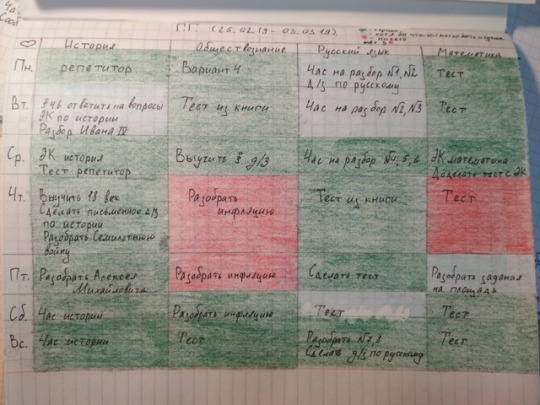 (25.02.19 - 03.03.19)
История Обществознание Русский язык Математика
Пн. репетитор Вариант 4 Час на разбор №1, №2 Тест
Д/З по русскому
Вт. § 46 ответить на вопросы Тест из книги Час на разбор №2, №3 Тест
ЭК по истории
Разбор Ивана IV
Ср. ЭК история Выучить § д/з Час на разбор №4, 5, 6 ЭК математика
Тест репетитор Доделать тест с ЭК
Чт. Выучить 18 век Разобрать Тест из книги Тест
Сделать письменное д/з инфляцию
по истории
Разобрать Семилетнюю
войну
Пт. Разобрать Алексея Разобрать инфляцию Сделать тест Разобрать задания
Михайловича на площадь
Сб. Час истории Разобрать инфляцию Тест Тест
Вс. Час истории Тест Разобрать №7, 8 Тест
Сделать д/з по русскому